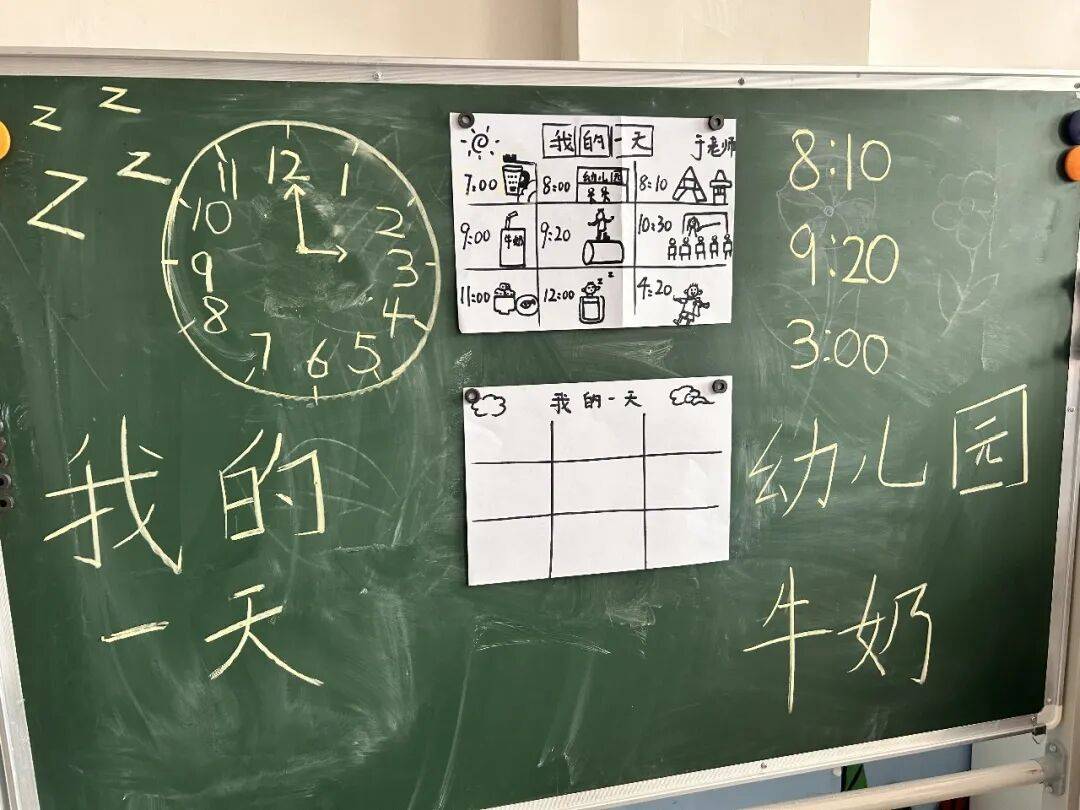 z z z Z
12
11 1
10 2
9 3
8 4
7 6 5
我的
一天
我的一天 于老师
7:00 8:00 幼儿园 8:10
9:00 牛奶 9:20 10:30
11:00 12:00 z z 4:20
我的一天
8:10
9:20
3:00
幼儿园
牛奶